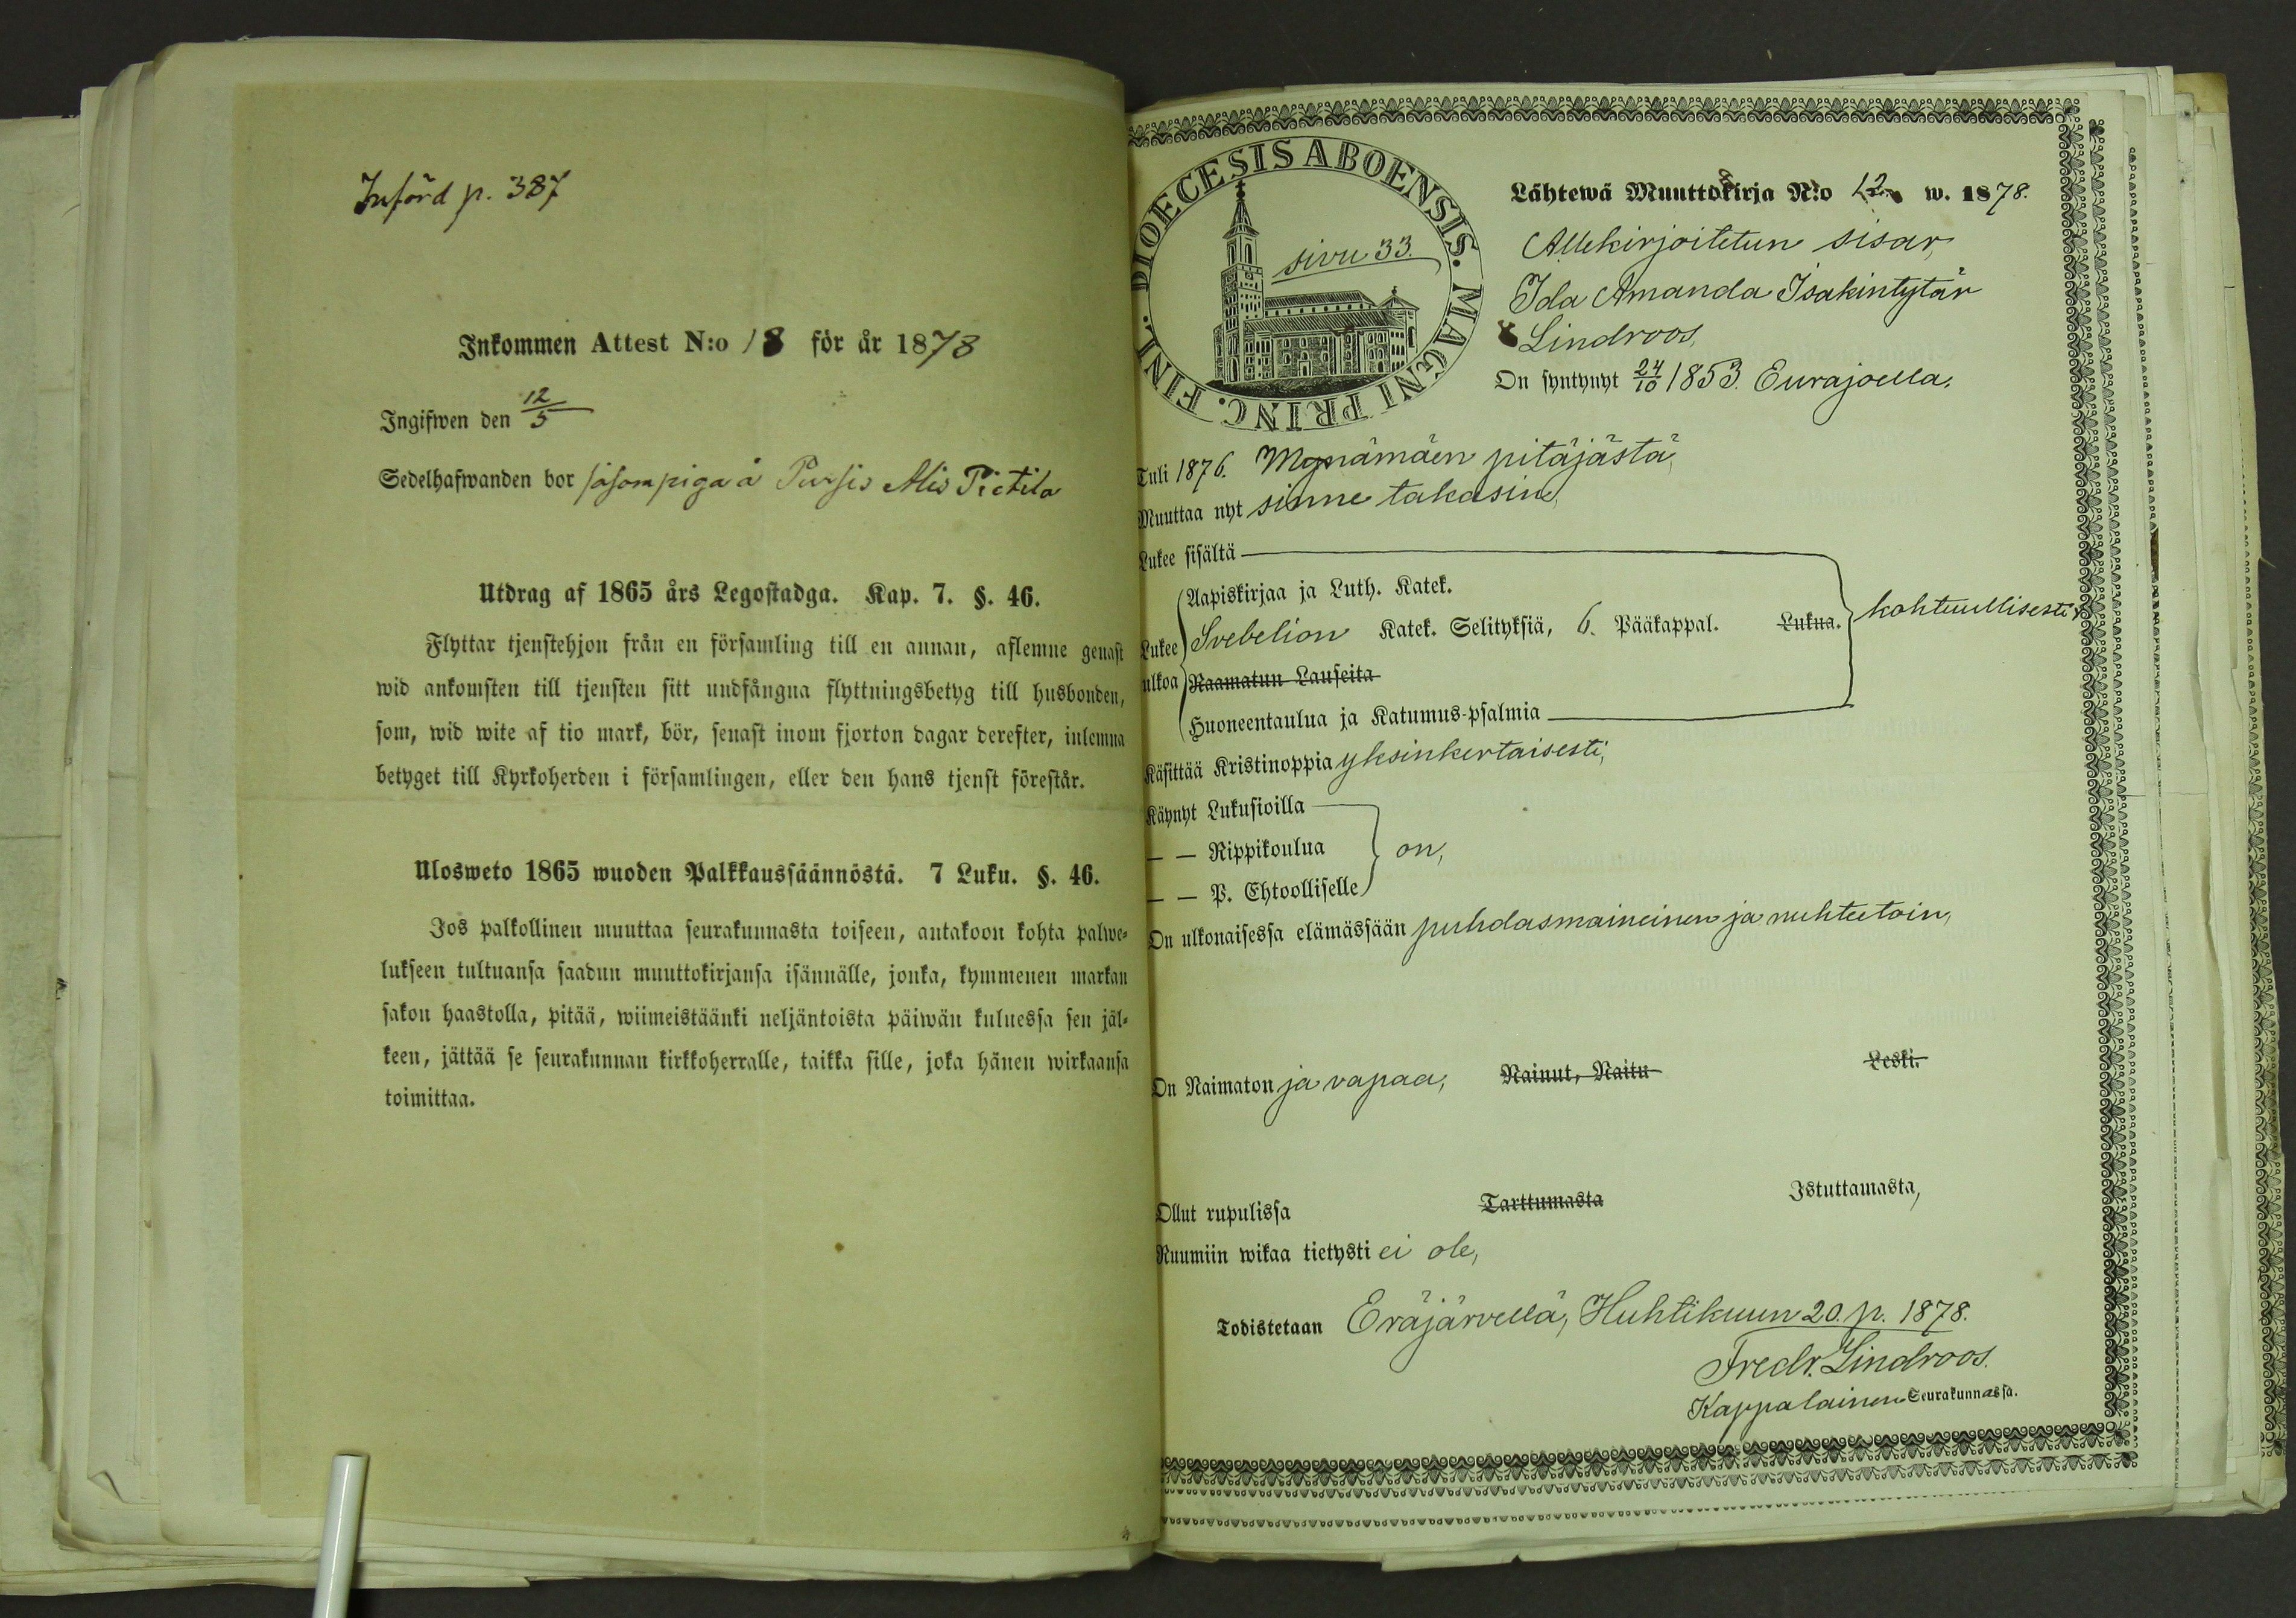 Införd p. 387
Inkommen Attest N:o 18 för år 1878
Ingifwen den 12/5
Sedelhafwanden bor såsom piga å Pursis Alis Pietilä
Utdrag af 1865 års Legostadga. Kap. 7. §. 46.
Flyttar tjenstehjon från en församling till en annan, aflemne genast
wid ankomsten till tjensten sitt undfångna flyttningsbetyg till husbonden,
som, wid wite af tio mark, bör, senast inom fjorton dagar derefter, inlemna
betyget till Kyrkoherden i församlingen, eller den hans tjenst förestår.
Ulosweto 1865 wuoden Palkkaussäännöstä. 7 Luku. §. 46.
Jos palkollinen muuttaa seurakunnasta toiseen, antakoon kohta palwe-
lukseen tultuansa saadun muuttokirjansa isännälle, jonka, kymmenen markan
sakon haastolla, pitää, wiimeistäänki neljäntoista päiwän kuluessa sen jäl-
keen, jättää se seurakunnan kirkkoherralle, taikka sille, joka hänen wirkaansa
toimittaa.
DIOECESIS ABOENSIS. MAGNI PRINC. FINL.
sivu 33.
Lähtewä Muuttokirja N:o 12 w. 1878.
Allekirjoitetun sisar,
Ida Amanda Isakintytär
Lindroos,
On syntynyt 24/10 1853. Eurajoella.
Tuli 1876. Mynämäen pitäjästä,
Muuttaa nyt sinne takasin,
Lukee sisältä
Aapiskirjaa ja Luth. Katek.
Lukee Svebelion Katek. Selityksiä, 6. Pääkappal. Lukua. kohtuullisesti,
ulkoa Raamatun Lauseita
Huoneentaulua ja Katumus-psalmia
Käsittää Kristinoppia yksinkertaisesti,
Käynyt Lukusioilla
— — Rippikoulua on,
— — P. Ehtoolliselle
On ulkonaisessa elämässään puhdasmaineinen ja nuhteetoin,
On Naimaton ja vapaa, Nainut, Naitu Leski.
Ollut rupulissa Tarttumasta Istuttamasta,
Ruumiin wikaa tietysti ei ole,
Todistetaan Eräjärvellä, Huhtikuun 20. p. 1878.
Fredr. Lindroos.
Kappalainen Seurakunnassa.